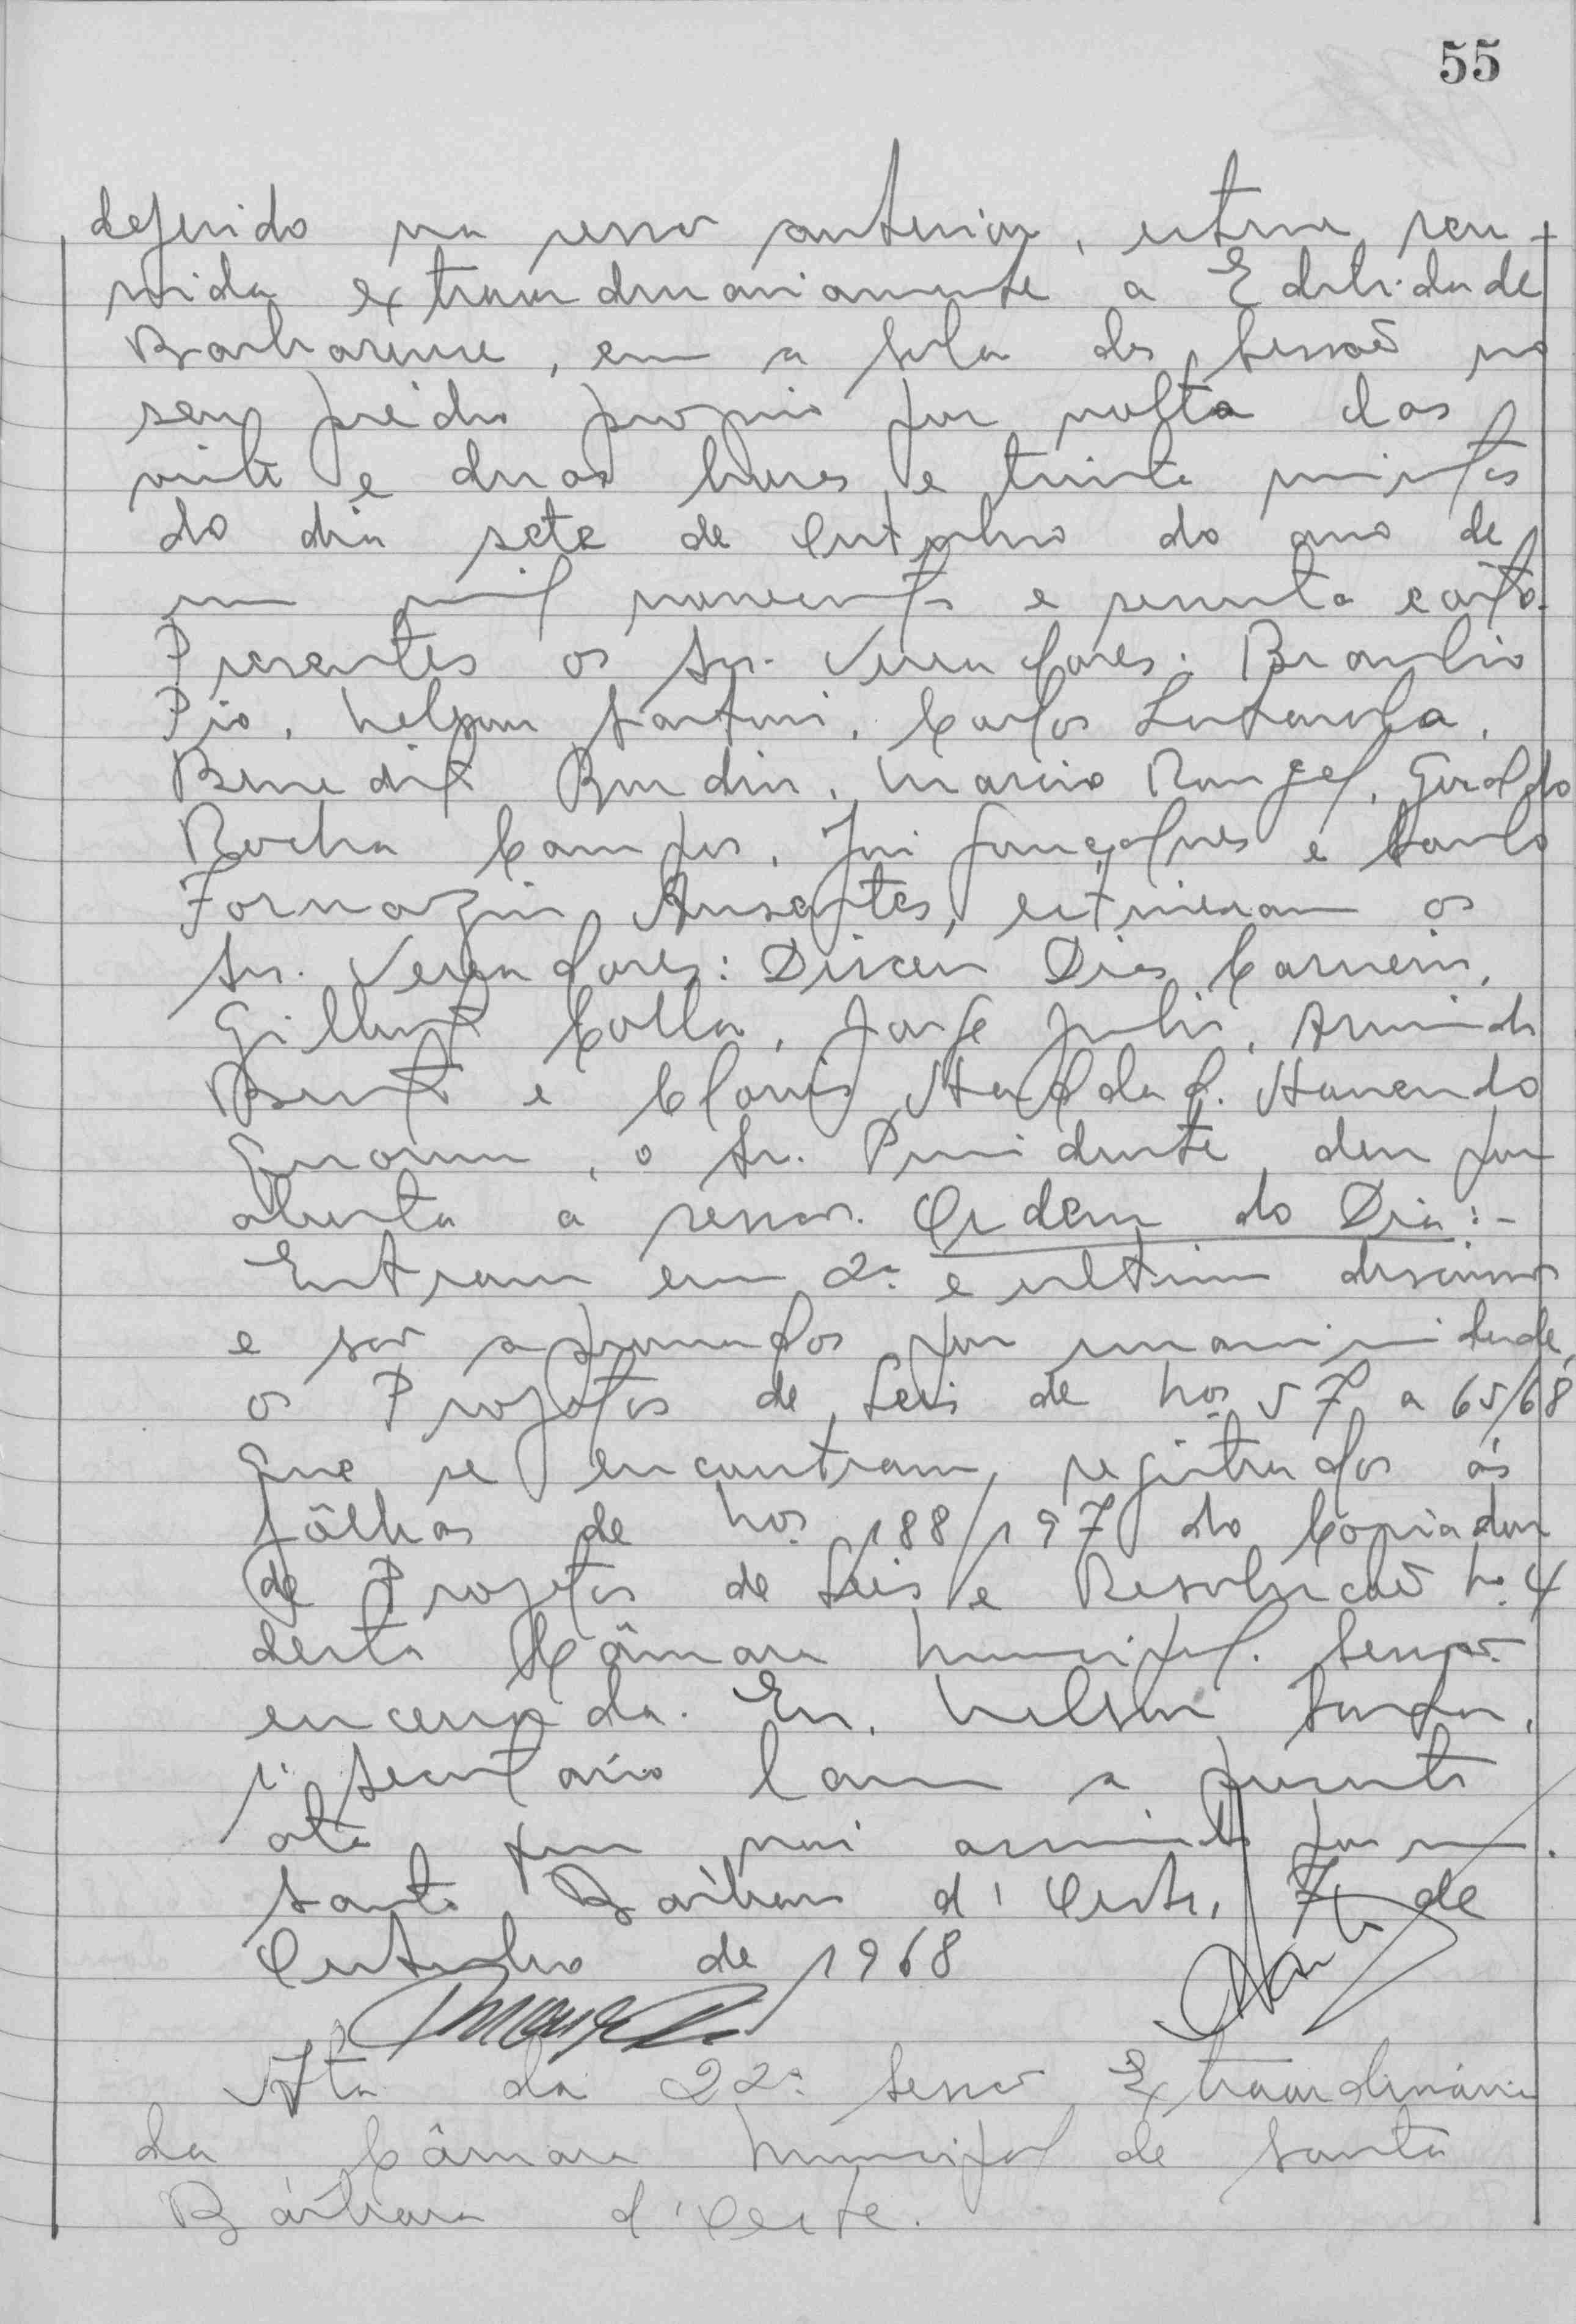 55
deferido na sessão anterior, esteve reu-
nida extraordinariamente a Edilidade
Barbarense, em a sala das sessoẽ no
seu prédio proprio por volta das
vinte e duas horas e trinta minutos
do dia sete de Outubro do ano de
um mil novecentos e sessenta e oito.
Presentes os Srs. Vereadores: Braulio
Pio, Nelson Santoni, Carlos
Benedito Bordin, Marcio Rangel, Geraldo
Rocha Campos, José Gonçalves e Santo
Fornazin Ausentes, estiveram os
Srs. Vereadores: Dirceu Dias Carneiro,
Gilberto Colla, Jorge Julio, Armindo
Bento e Clovis Haddad. Havendo
Quorum, o Sr. Presidente, deu por
aberta a sessão. Ordem do Dia:-
Entram em 2ª e ultima discussão
e são aprovados por unanimidade,
os Projetos de Leis de Nos. 57 a 65/68
que se encontram, registrados ás
fôlhas de Nos. 188/197 do Copiador
de Projetos de Leis e Resolucaõ No. 4
desta Câmara Municipal. Sessão
encerrada. Eu, Nelson
1º Secretário lavrei a presente
ata que vai assinada por mim.
Santa Bárbara d'Oeste, 7 de
Outubro de 1968
Ata da 22ª Sessão Extraordinária
da Câmara Municipal de Santa
Bárbara d'Oeste.